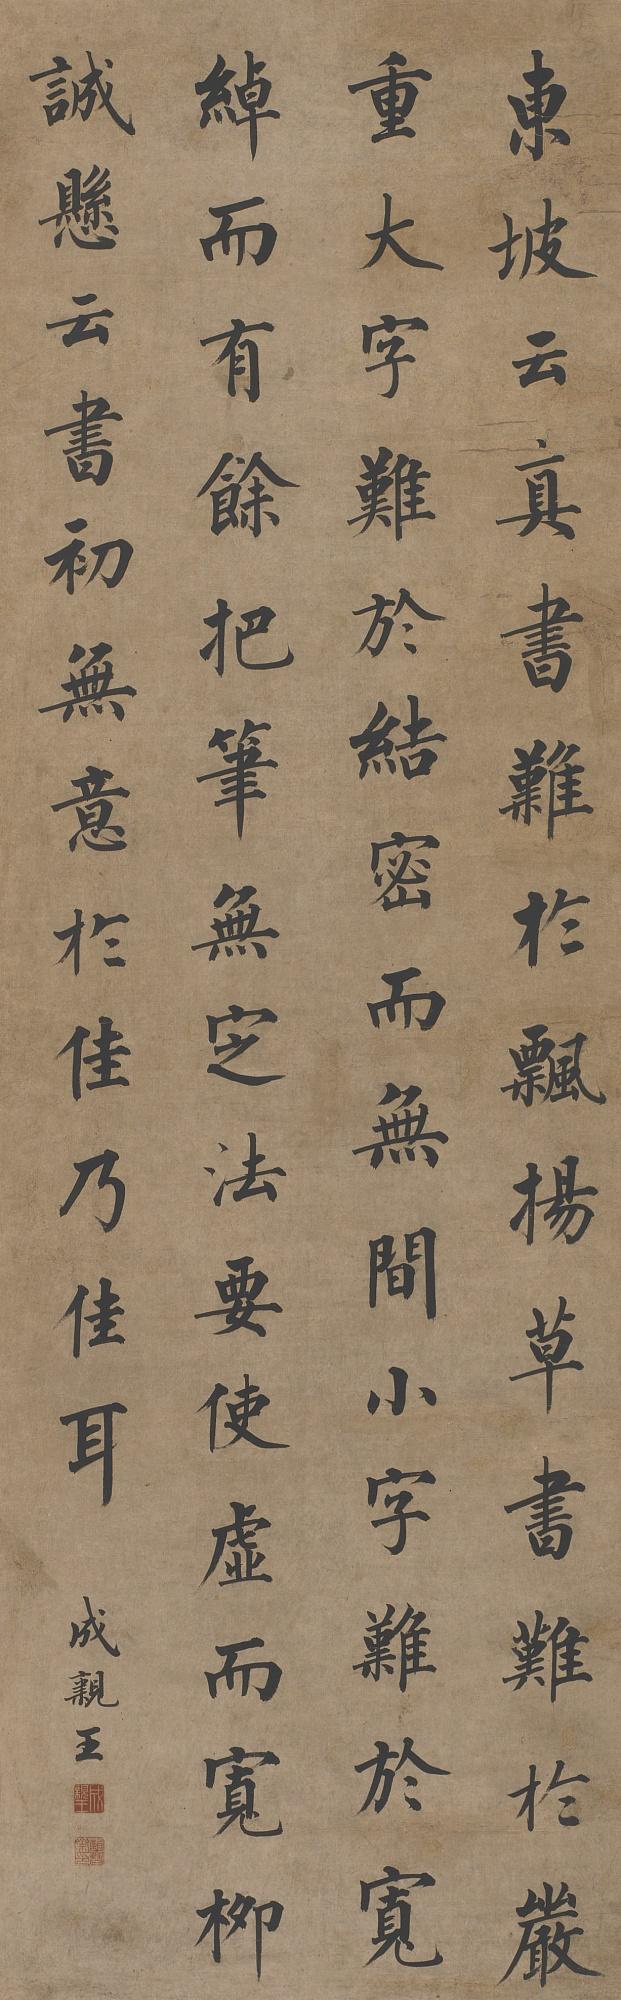 東坡云真書難於飄揚草書難於嚴
重大字難於結密而無間小字難於寬
綽而有餘把筆無定法要使虛而寬柳
誠懸云書初無意於佳乃佳耳
成親王